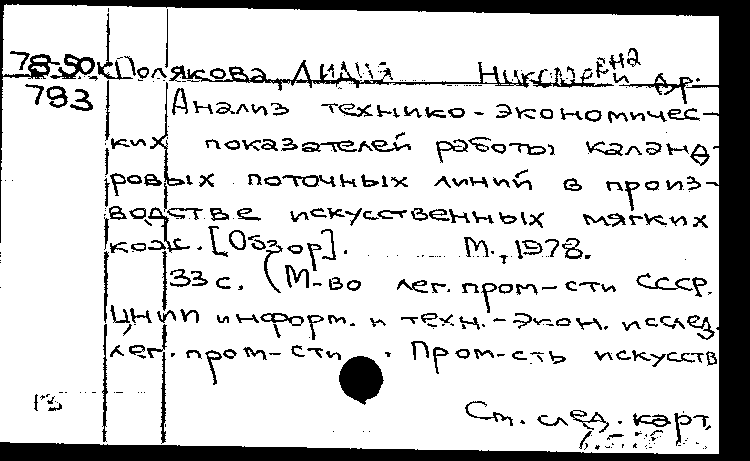 78-50к Полякова, Лидия Николаевна и др.
783 Анализ технико-экономичес-
ких показателей работы каланд-
ровых поточных линий в произ-
водстве искусственных мягких
кож. [Обзор]. М., 1978.
33 с. (М-во лег. пром-сти СССР.
ЦНИИ информ. и техн.-экон. исслед.
лег. пром-сти. Пром-сть искусств
См. след. карт.